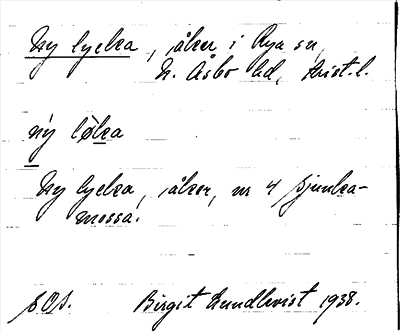 Ny lycka, åker i Rya sn,
N. Åsbo hd, Krist. l.
ny løka
Ny lycka, åker, nr 4 Sjunka-
mossa.
S.O.S. Birgit Lundkvist 1938.